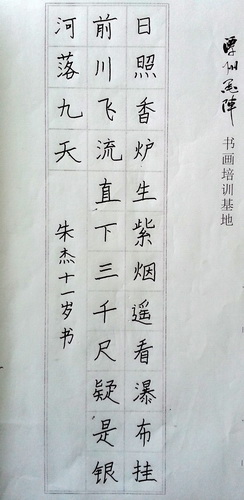 日照香炉生紫烟遥看瀑布挂
前川飞流直下三千尺疑是银
河落九天
朱杰十一岁书
书画培训基地